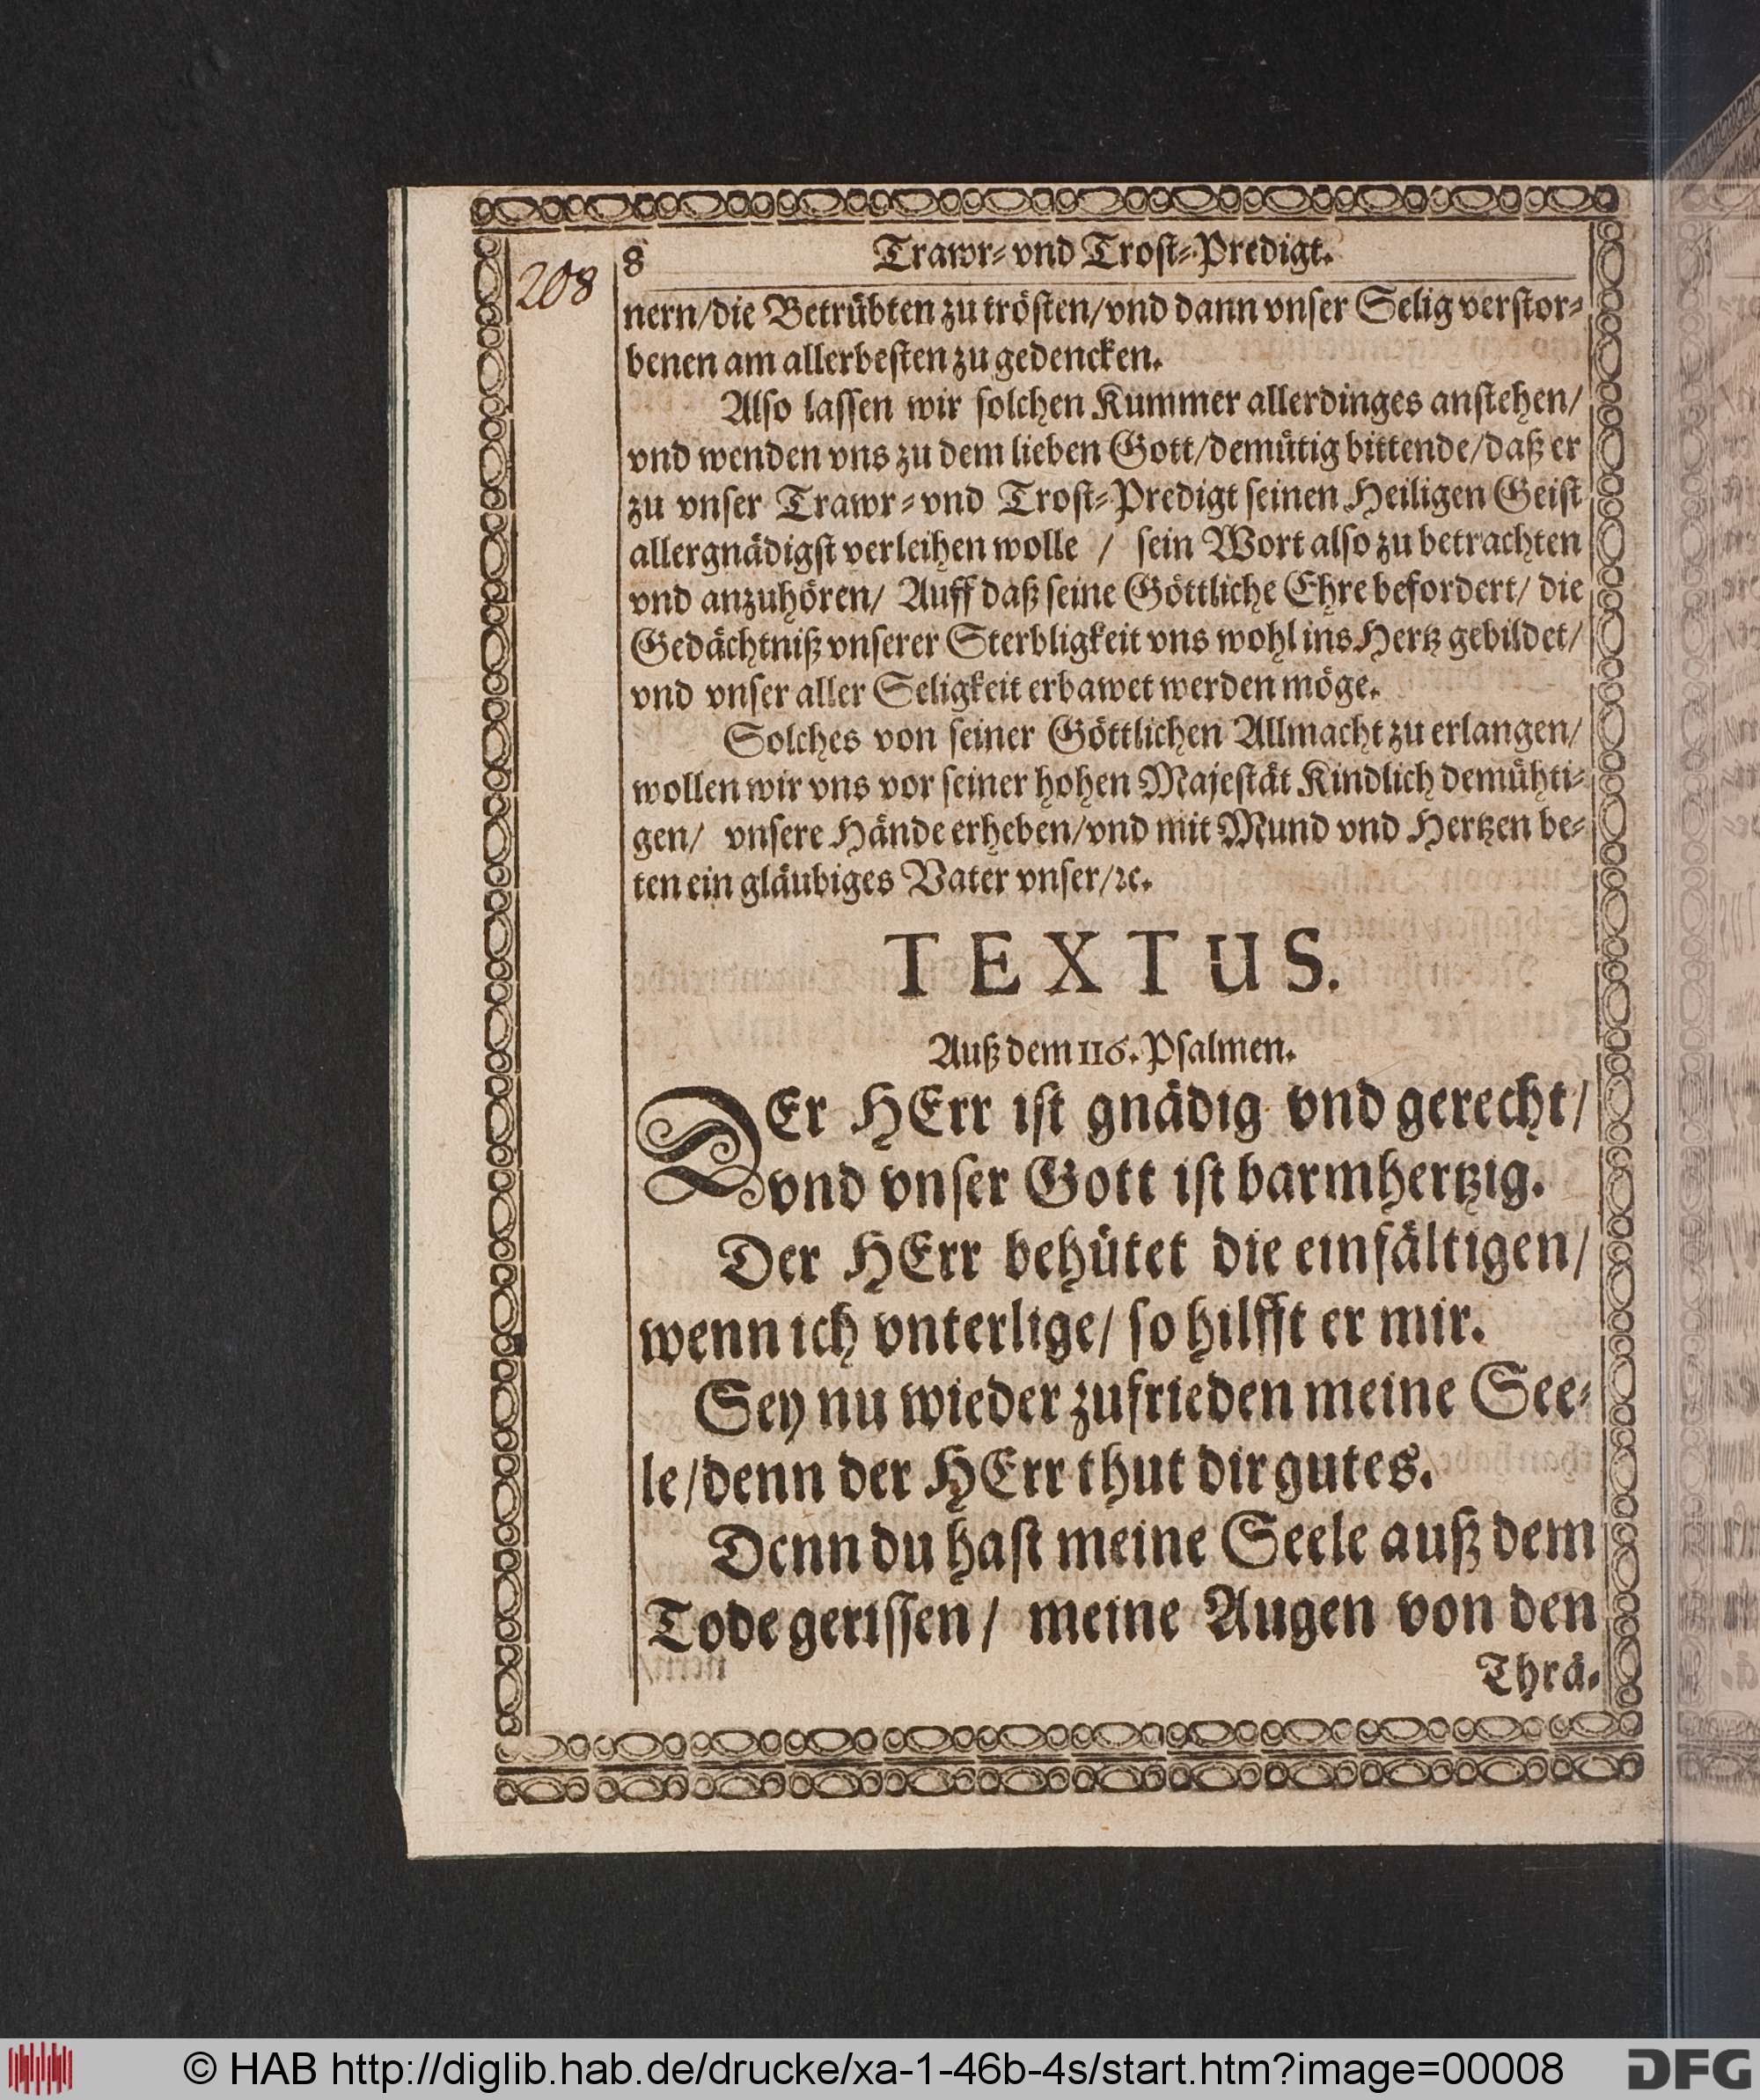 208
8 Trawr- vnd Trost-Predigt.
nern/die Betrübten zu trösten/vnd dann vnser Selig verstor-
benen am allerbesten zu gedencken.
Also lassen wir solchen Kummer allerdinges anstehen/
vnd wenden vns zu dem lieben Gott/demütig bittende/daß er
zu vnser Trawr- vnd Trost-Predigt seinen Heiligen Geist
allergnädigst verleihen wolle / sein Wort also zu betrachten
vnd anzuhören/ Auff daß seine Göttliche Ehre befordert/ die
Gedächtniß vnserer Sterbligkeit vns wohl ins Hertz gebildet/
vnd vnser aller Seligkeit erbawet werden möge.
Solches von seiner Göttlichen Allmacht zu erlangen/
wollen wir vns vor seiner hohen Majestät Kindlich demühti-
gen/ vnsere Hände erheben/vnd mit Mund vnd Hertzen be-
ten ein gläubiges Vater vnser/ꝛc.
TEXTUS.
Auß dem 116. Psalmen.
DEr HErr ist gnädig vnd gerecht/
vnd vnser Gott ist barmhertzig.
Der HErr behütet die einfältigen/
wenn ich vnterlige/ so hilfft er mir.
Sey nu wieder zufrieden meine See-
le/denn der HErr thut dir gutes.
Denn du hast meine Seele auß dem
Tode gerissen/ meine Augen von den
Thrä-
© HAB http://diglib.hab.de/drucke/xa-1-46b-4s/start.htm?image=00008
DFG